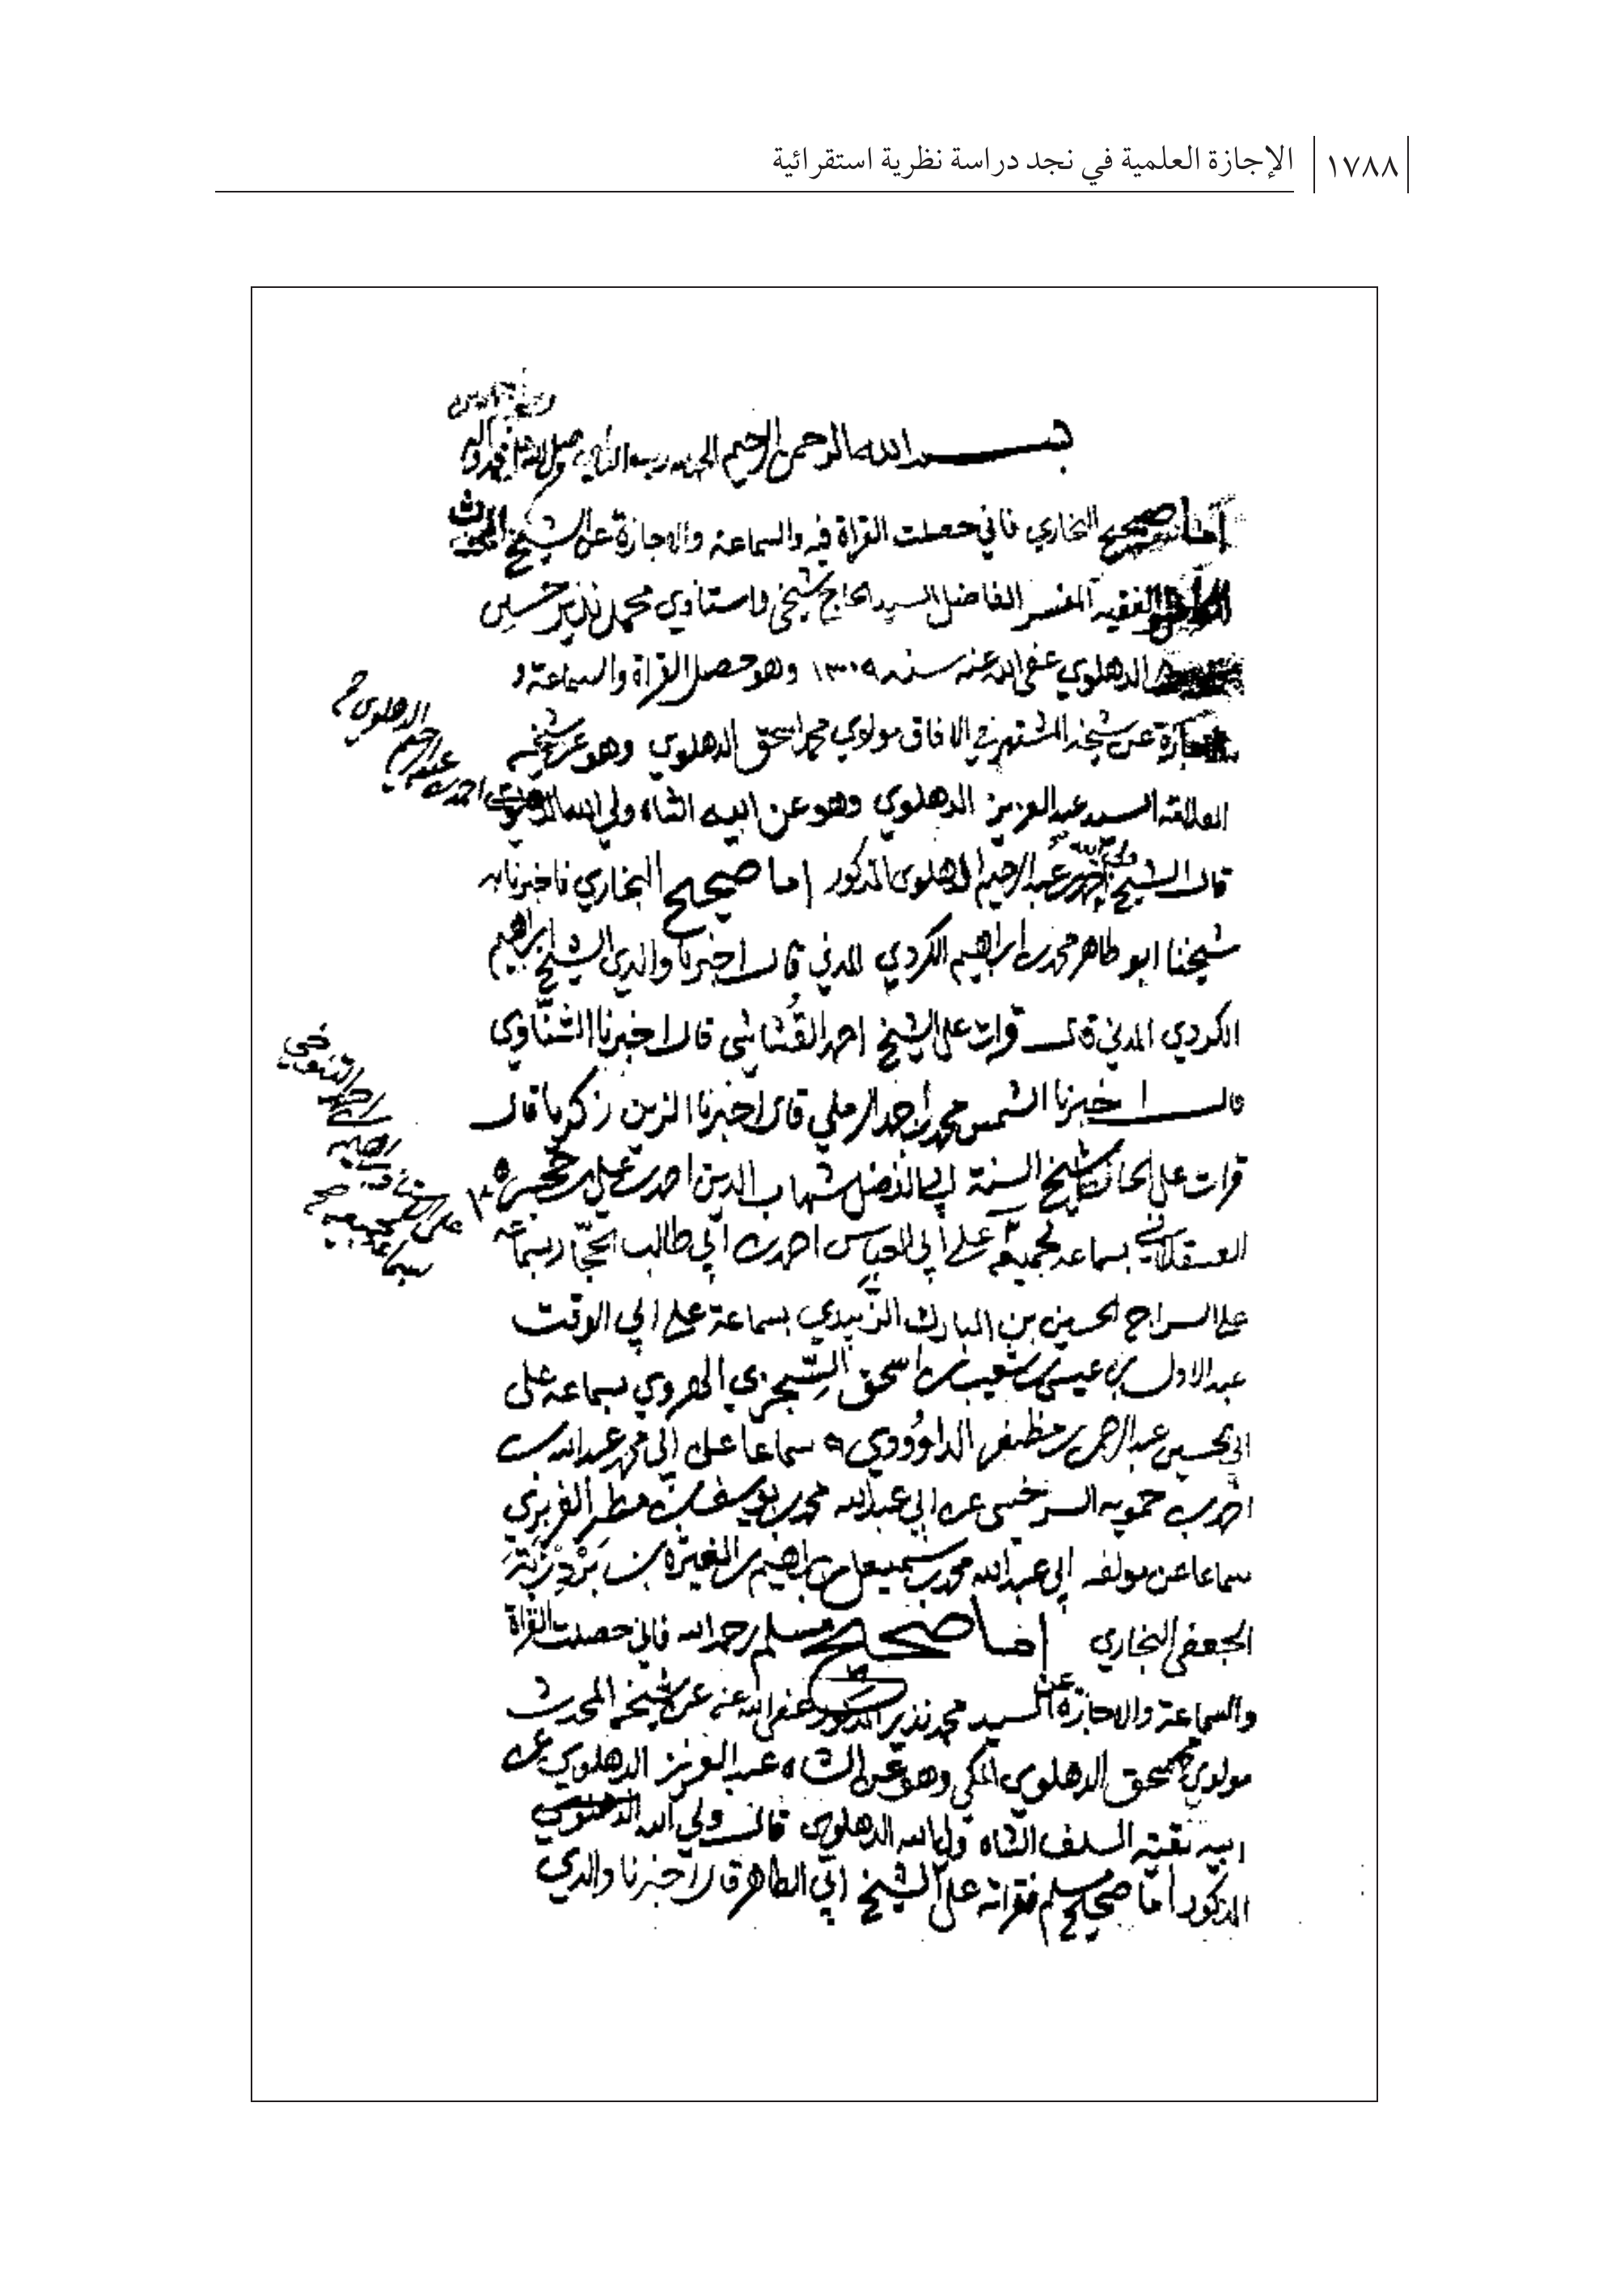 ١٧٨٨ الإجازة العلمية في نجد دراسة نظرية استقرائية
بسم الله الرحمن الرحيم الحمد لله رب العالمين وصلى الله على محمد واله
أما صحيح البخاري فاني حصلت القراة فيه والسماعة والاجازة عن الشيخ المحدث
الفقيه المفسر الفاضل السيد الحاج شيخي واستاذي محمد نذير حسين
الدهلوي عفى الله عنه سنه ١٣٠٩ وهو حصل القراة والسماعة و
عن شيخه المشتهر في الافاق مولوي محمد اسحق الدهلوي وهو عن شيخه
السيد عبد العزيز الدهلوي وهو عن ابيه الشاه ولي الله احمد بن
عبد الرحيم
الدهلوي
قال الشيخ ولي الله بن عبد الرحيم الدهلوي المذكور اما صحيح البخاري فاخبرنا به
شيخنا ابو طاهر محمد بن ابراهيم الكردي المدني قال اخبرنا والدي الشيخ ابراهيم
الكردي المدني قال قرات على الشيخ احمد القشاشي قال اخبرنا الشناوي
قال اخبرنا الشمس محمد بن احمد الرملي قال اخبرنا الزين زكريا قال
قرات على الحافظ شيخ السنة ابي الفضل شهاب الدين احمد بن علي بن حجر
العسقلاني بسماعه لجميعه على أبي العباس احمد بن أبي طالب الحجّار بسماعه
على السراج الحسين بن المبارك الزّبيدي بسماعة على ابي الوقت
عبد الاول بن عيسى بن شعيب بن اسحق السِّجزي الهروي بسماعه على
ابي الحسين عبد الرحمن بن مظفر الداوُودي سماعا على ابي محمد عبد الله بن
احمد بن حمويه السرخسي عن ابي عبد الله محمد بن يوسف بن مطر الفربري
سماعا عن مولفه ابي عبد الله محمد بن اسمعيل بن ابراهيم بن المغيرة بن بَرْدِزْبَة
الجعفي البخاري اما صحيح مسلم رحمه الله فاني حصلت القراة
والسماعة والاجازة عن السيد محمد نذير المذكور عفى الله عنه عن شيخه المحدث
مولوي محمد اسحق الدهلوي المكي وهو عن الشاه عبد العزيز الدهلوي عن
ابيه بقية السلف الشاه ولي الله الدهلوي قال ولي الله الدهلوي
المذكور أما صحيح مسلم فقراته على الشيخ أبي الطاهر قال اخبرنا والدي